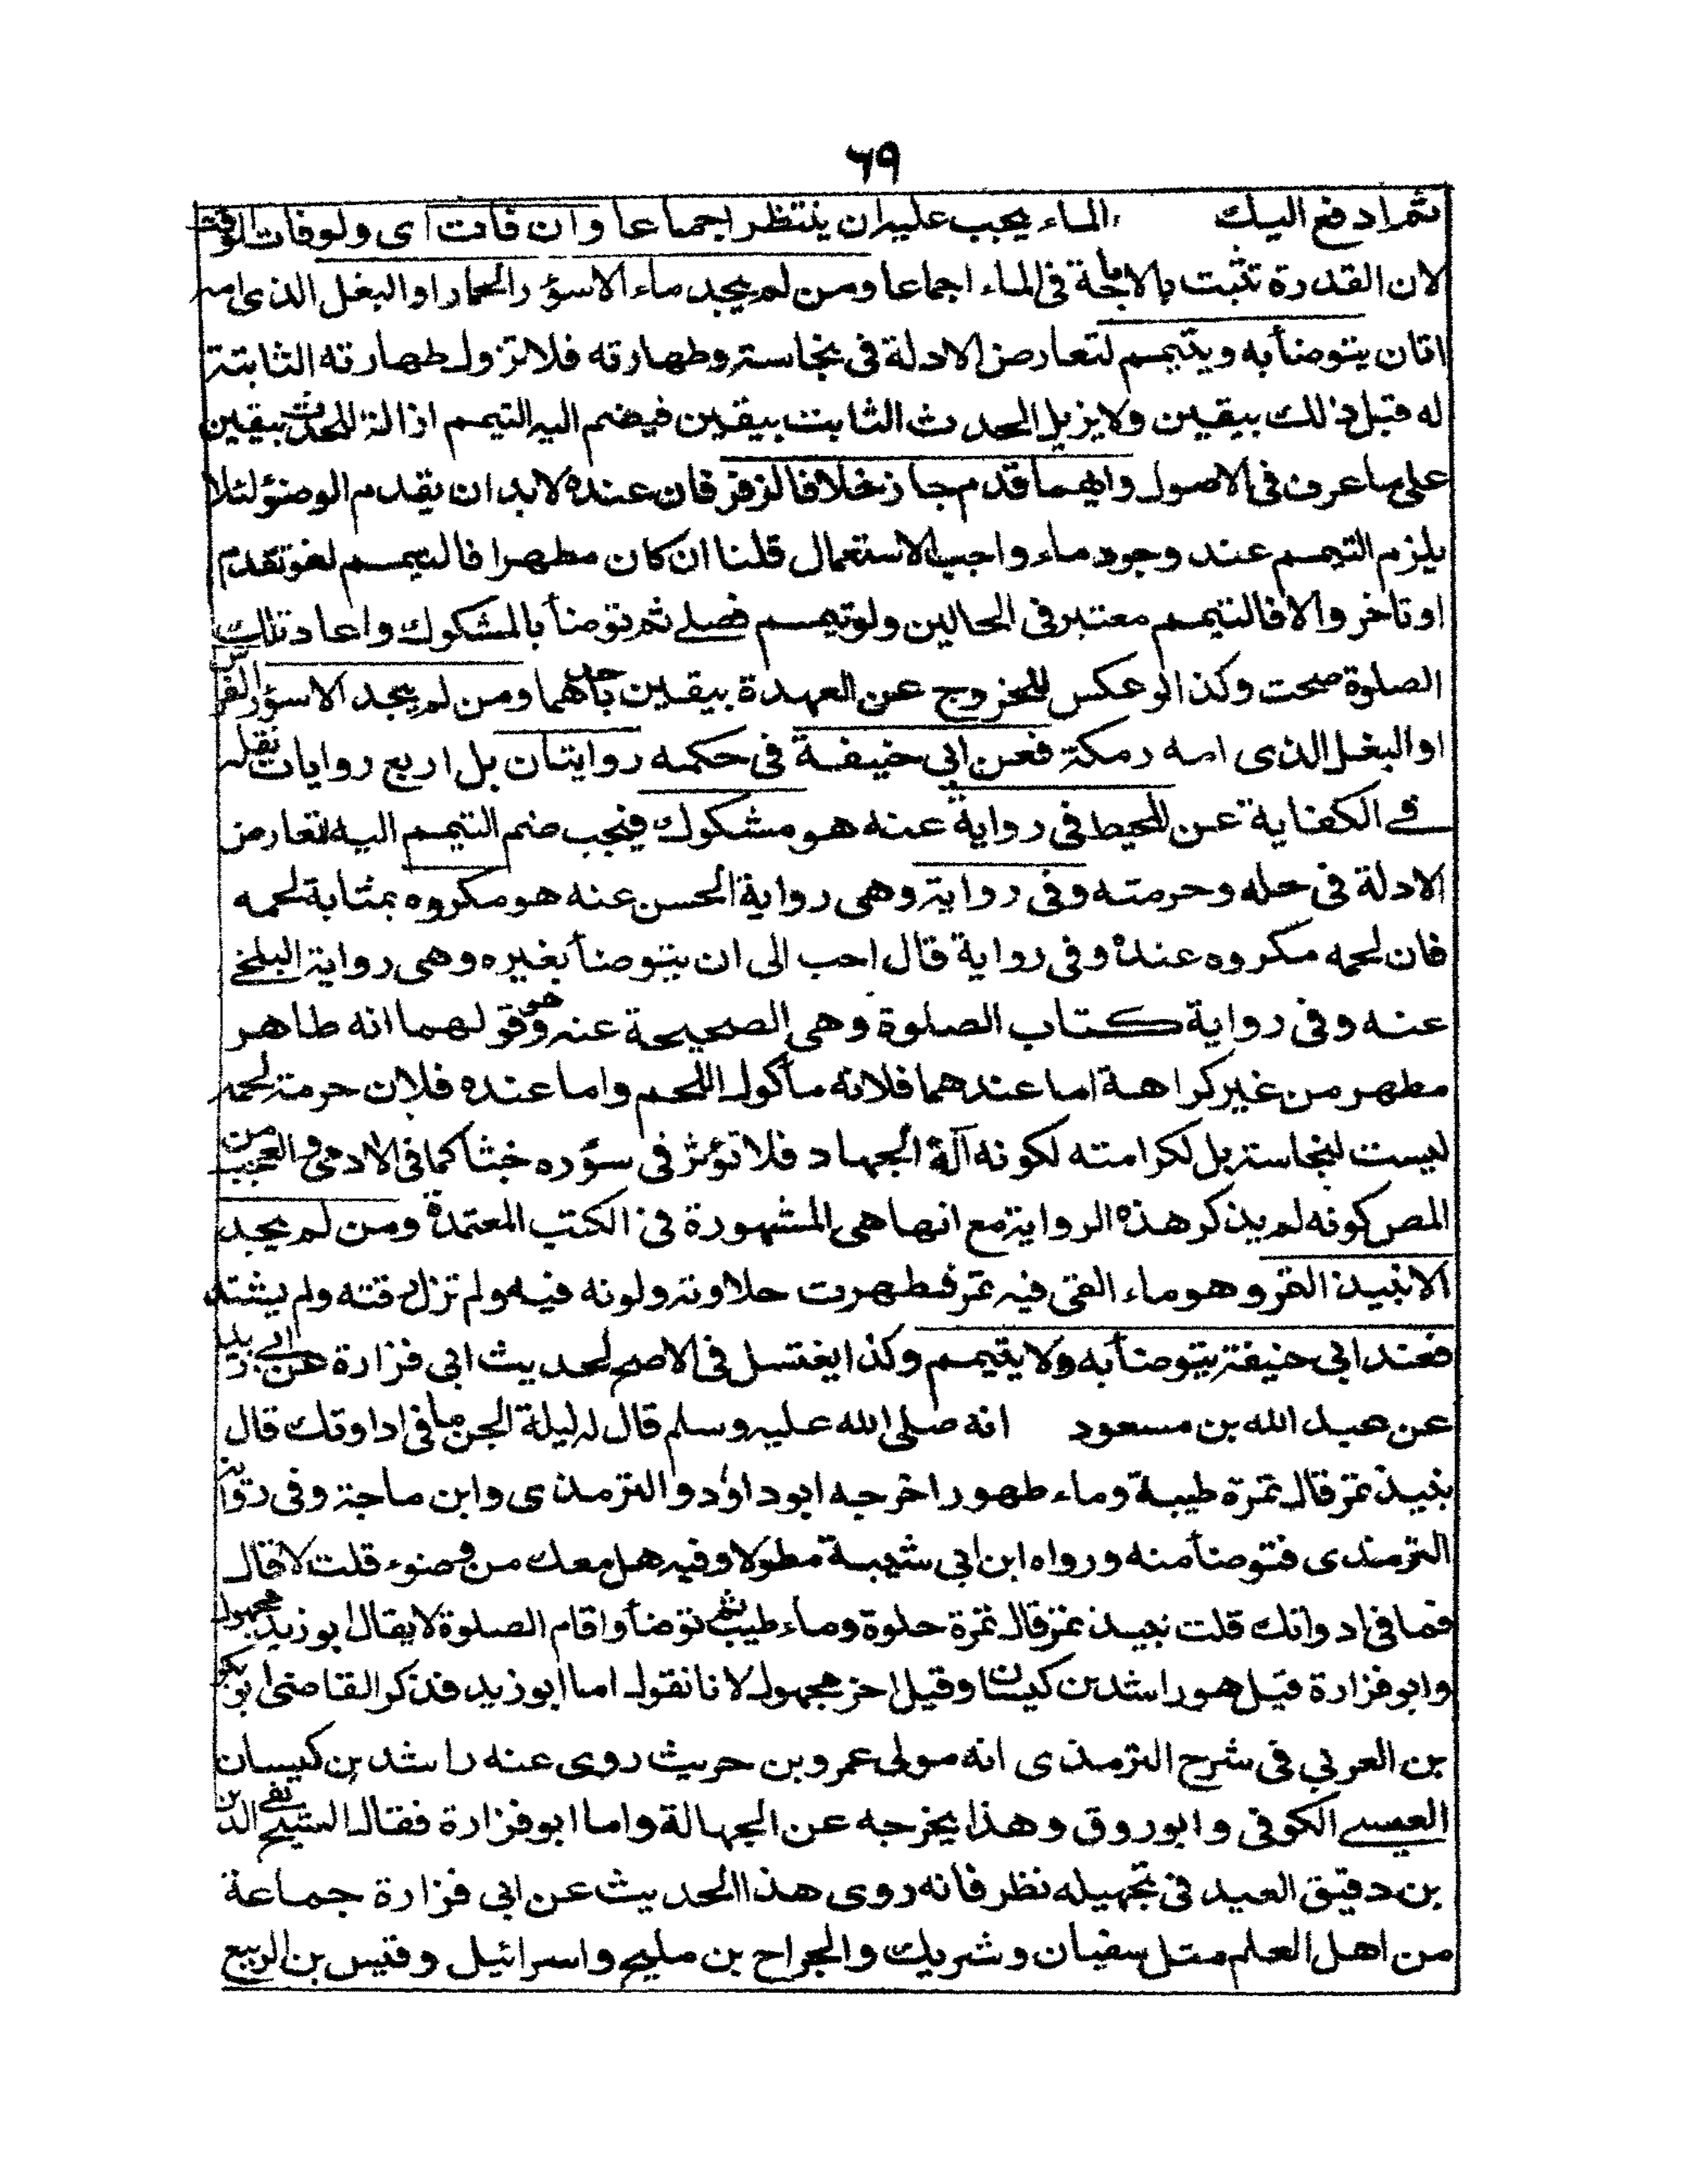 ٦٩
ثم ادفع اليك الماء يجب عليه ان ينتظر اجماعا وان فاتت اى ولو فات الوقت
لان القدرة تثبت بالاباحة فى الماء اجماعا ومن لم يجد ماء الا سؤر الحمار او البغل الذى امه
اتان يتوضأ به ويتيمم لتعارض الادلة فى نجاسته وطهارته فلا تزول طهارته الثابتة
له قبل ذلك بيقين ولا يزيل الحدث الثابت بيقين فيضم اليه التيمم ازالة للحدث بيقين
على ما عرف فى الاصول وايهما قدم جاز خلافا لزفر فان عنده لا بد ان يقدم الوضؤ لئلا
يلزم التيمم عند وجود ماء واجب الاستعمال قلنا ان كان مطهرا فالتيمم لغو تقدم
او تاخر والا فالتيمم معتبر فى الحالين ولو تيمم فصلے ثم توضأ بالمشكوك واعاد تلك
الصلوة صحت وكذا لو عكس للخروج عن العهدة بيقين باحدهما ومن لم يجد الا سؤر الفرس
او البغل الذى امه رمكة فعن ابى حنيفة فى حكمه روايتان بل اربع روايات نقله
فے الكفاية عن المحيط فى رواية عنه هو مشكوك فيجب ضم التيمم اليه لتعارض
الادلة فى حله وحرمته وفى رواية وهى رواية الحسن عنه هو مكروه بمثابة لحمه
فان لحمه مكروه عنده وفى رواية قال احب الى ان يتوضأ بغيره وهى رواية البلخے
عنه وفى رواية كتاب الصلوة وهى الصحيحة عنه وهو قولهما انه طاهر
مطهر من غير كراهة اما عندهما فلانه مأكول اللحم واما عنده فلان حرمة لحمه
ليست لنجاسته بل لكرامته لكونه آلة الجهاد فلا تؤثر فى سؤره خبثا كما فى الادمى والعجب من
المص كونه لم يذكر هذه الرواية مع انها هى المشهورة فى الكتب المعتمدة ومن لم يجد
الا نبيذ التمر وهو ماء القى فيه تمر فظهرت حلاوته ولونه فيه ولم تزل رقته ولم يشتد
فعند ابى حنيفة يتوضأ به ولا يتيمم وكذا يغتسل فى الاصح لحديث ابى فزارة عن ابے زيد
عن عبد الله بن مسعود انه صلى الله عليه وسلم قال له ليلة الجن ما فى اداوتك قال
نبيذ تمر قال تمرة طيبة وماء طهور اخرجه ابو داؤد والترمذى وابن ماجة وفى رواية
الترمذى فتوضأ منه ورواه ابن ابى شيبة مطولا وفيه هل معك من وضوء قلت لا قال
فما فى اداوتك قلت نبيذ تمر قال تمرة حلوة وماء طيب ثم توضأ واقام الصلوة لا يقال ابو زيد مجهول
وابو فزارة قيل هو راشد بن كيسان وقيل اخر مجهول لانا نقول اما ابو زيد فذكر القاضى ابو بكر
بن العربي فى شرح الترمذى انه مولى عمرو بن حريث روى عنه راشد بن كيسان
العبسے الكوفى وابو روق وهذا يخرجه عن الجهالة واما ابو فزارة فقال الشيخ تقے الدين
بن دقيق العيد فى تجهيله نظر فانه روى هذا الحديث عن ابى فزارة جماعة
من اهل العلم مثل سفيان وشريك والجراح بن مليح واسرائيل وقيس بن الربيع